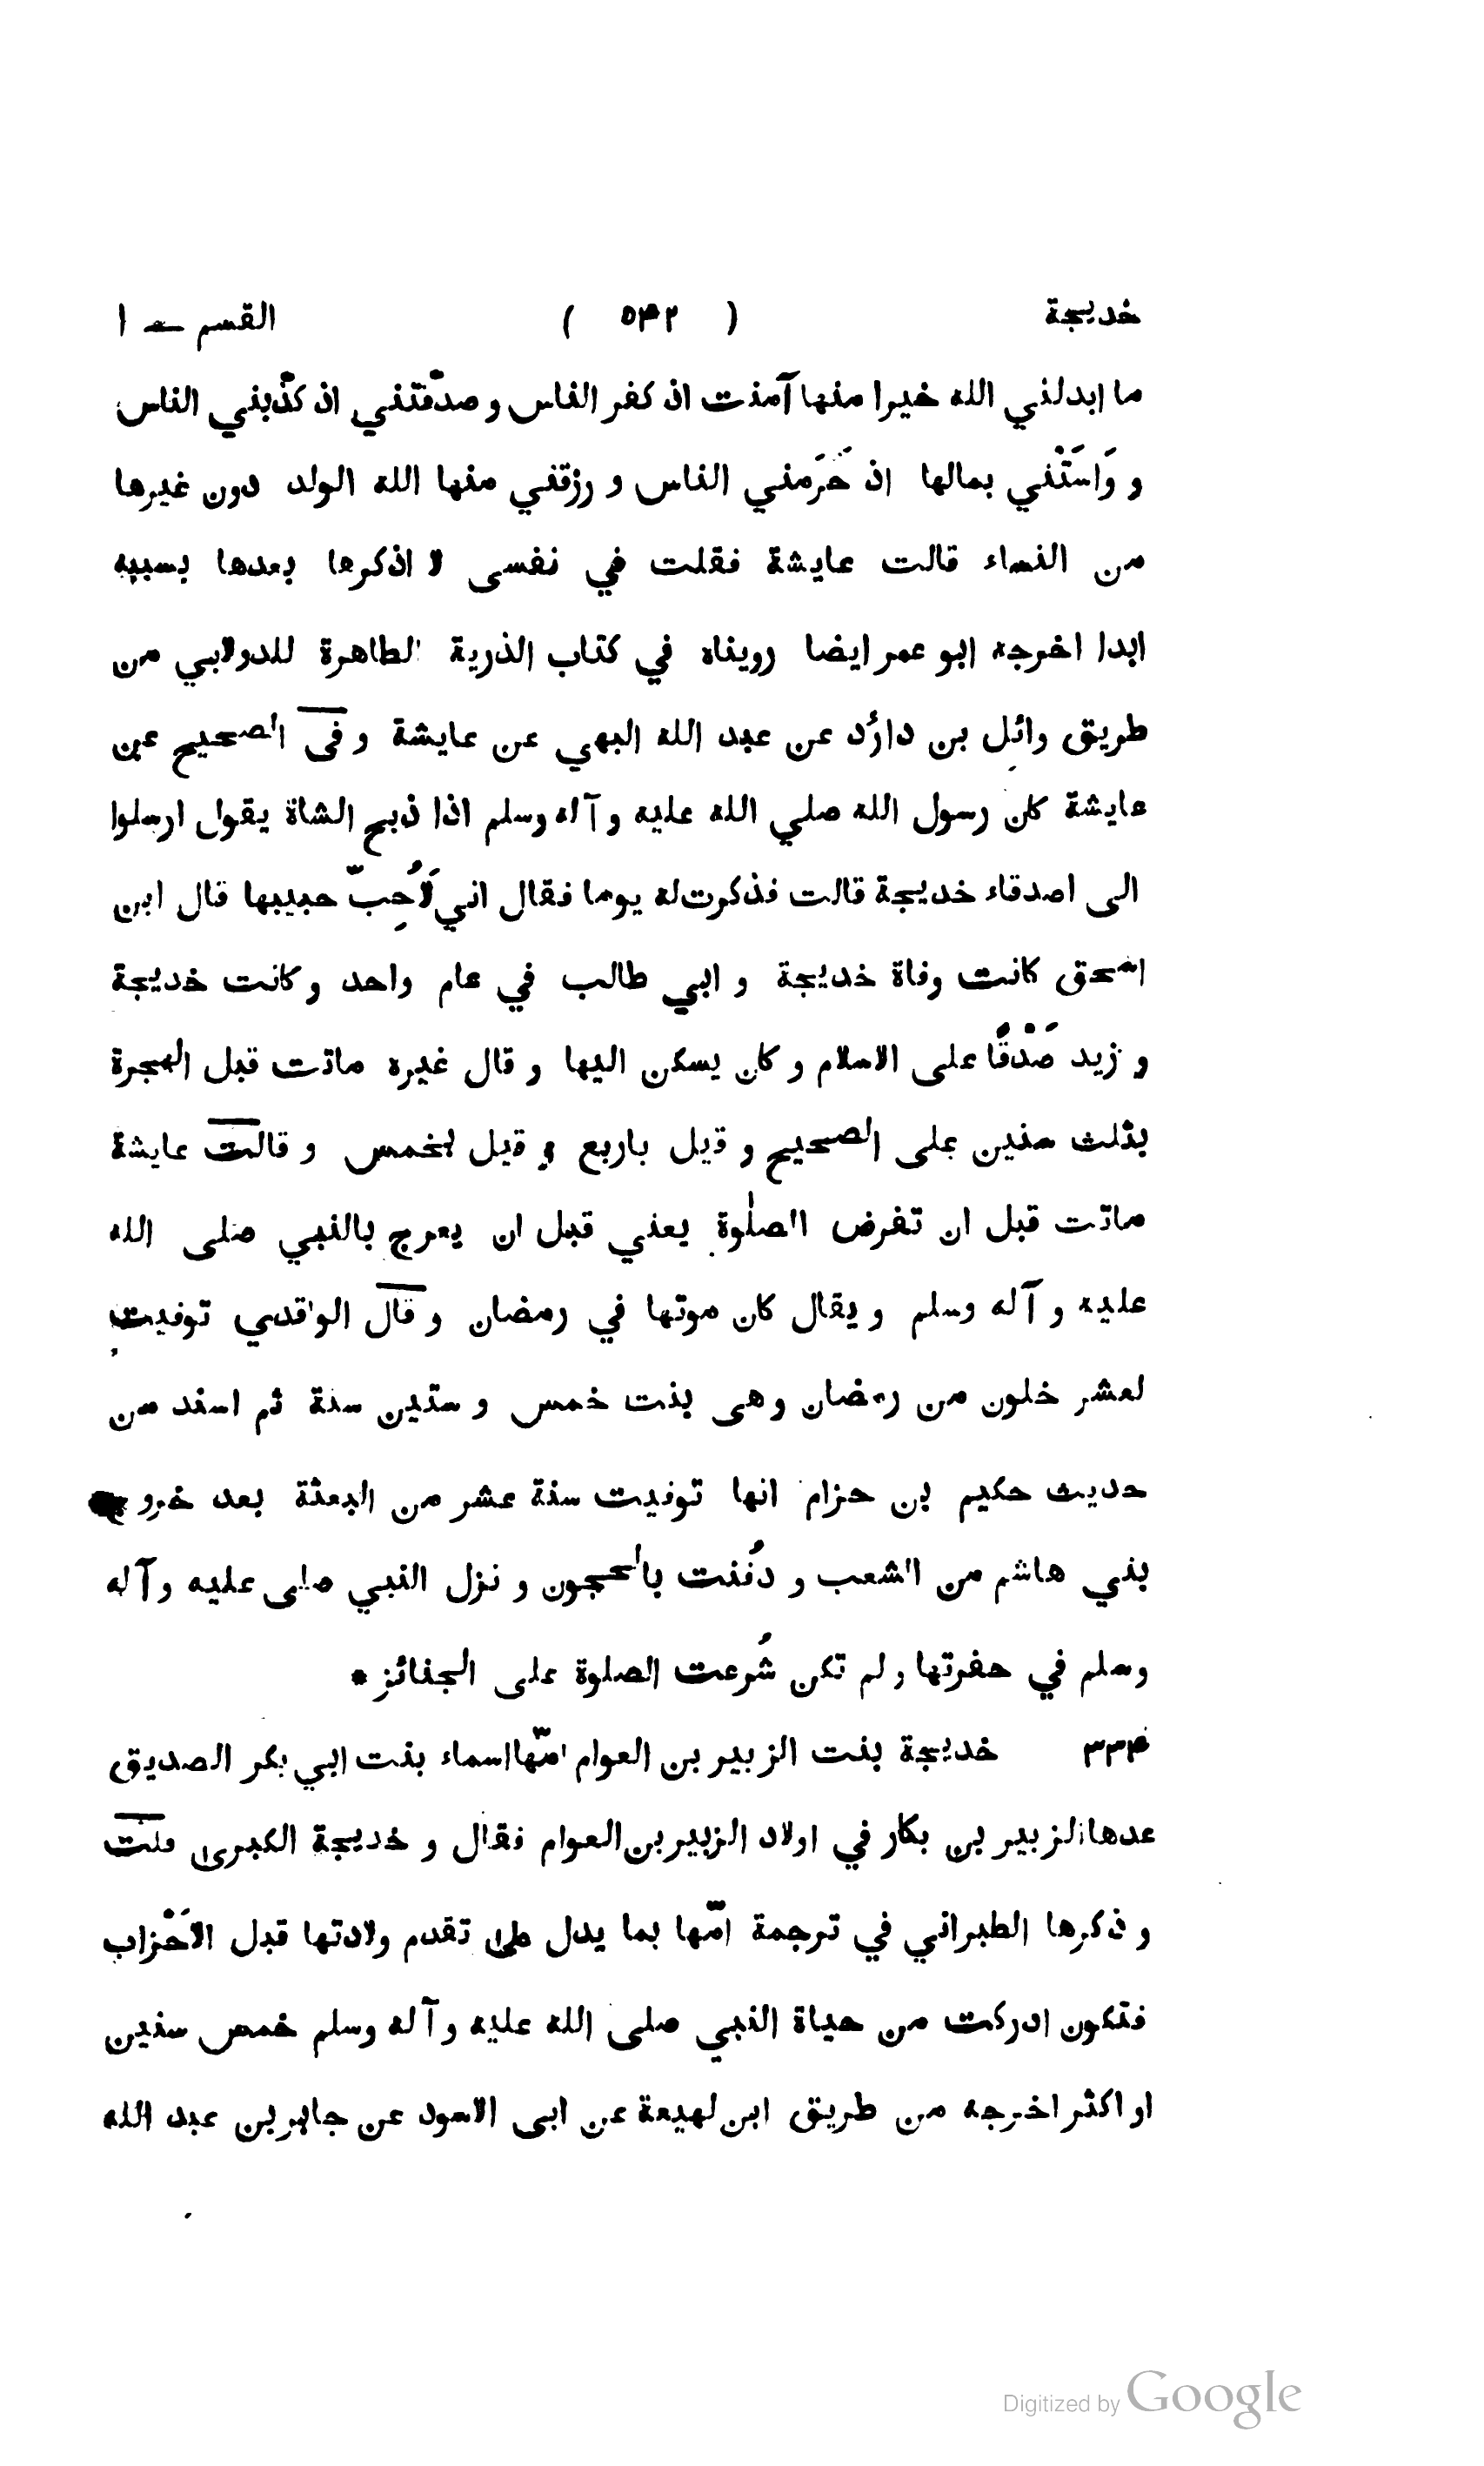 خديجة ( ٥٣٢ ) القسم — ١
ما ابدلني الله خيرا منها آمنت اذ كفر الناس و صدّقتني اذ كذّبني الناس
و وَاسَتْني بمالها اذ حَرَمني الناس و رزقني منها الله الولد دون غيرها
من النساء قالت عايشة فقلت في نفسى لا اذكرها بعدها بسبيه
ابدا اخرجه ابو عمر ايضا رويناه في كتاب الذرية الطاهرة للدولابي من
طريق وائل بن داؤد عن عبد الله البهي عن عايشة و فى الصحيح عن
عايشة كان رسول الله صلي الله عليه و آله وسلم اذا ذبح الشاة يقول ارسلوا
الى اصدقاء خديجة قالت فذكرت له يوما فقال اني لَاُحِبّ حبيبها قال ابن
اسحق كانت وفاة خديجة و ابي طالب في عام واحد و كانت خديجة
و زيد صَدْقًا على الاسلام و كان يسكن اليها و قال غيره ماتت قبل الهجرة
بثلث سنين على الصحيح و قيل باربع و قيل بخمس و قالت عايشة
ماتت قبل ان تفرض الصلٰوة يعني قبل ان يعرج بالنبي صلى الله
عليه و آله وسلم و يقال كان موتها في رمضان و قال الواقدي توفيت
لعشر خلون من رمضان و هى بنت خمس و ستين سنة ثم اسند من
حديث حكيم بن حزام انها توفيت سنة عشر من البعثة بعد خروج
بني هاشم من الشعب و دُفنت بالحجون و نزل النبي صلى عليه و آله
وسلم في حفرتها و لم تكن شُرعت الصلوة على الجنائز *
٣٣٤ خديجة بنت الزبير بن العوام امّها اسماء بنت ابي بكر الصديق
عدها الزبير بن بكار في اولاد الزبير بن العوام فقال و خديجة الكبرى قلت
و ذكرها الطبراني في ترجمة امّها بما يدل على تقدم ولادتها قبل الاَحْزاب
فتكون ادركت من حياة النبي صلى الله عليه و آله وسلم خمس سنين
او اكثر اخرجه من طريق ابن لهيعة عن ابى الاسود عن جابر بن عبد الله
Digitized by Google